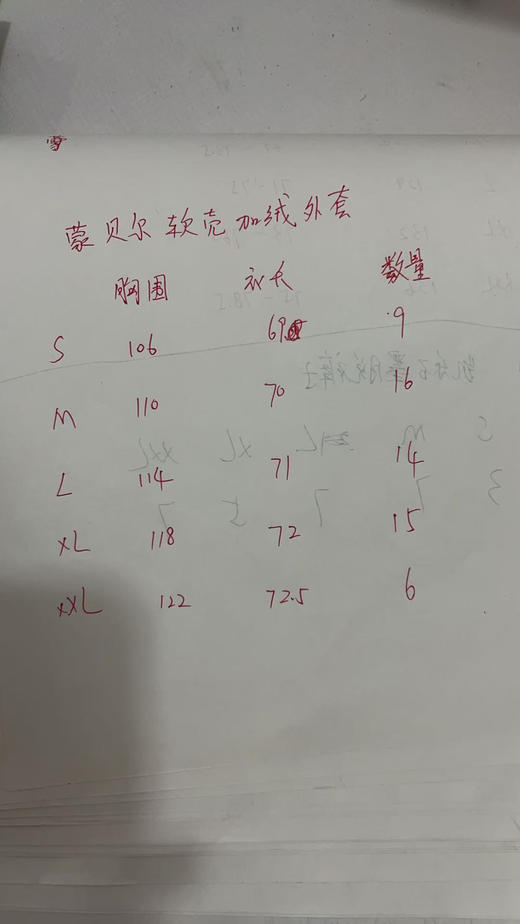 雪
蒙贝尔软壳加绒外套
胸围 衣长 数量
S 106 69 9
M 110 70 16
L 114 71 14
XL 118 72 15
XXL 122 72.5 6